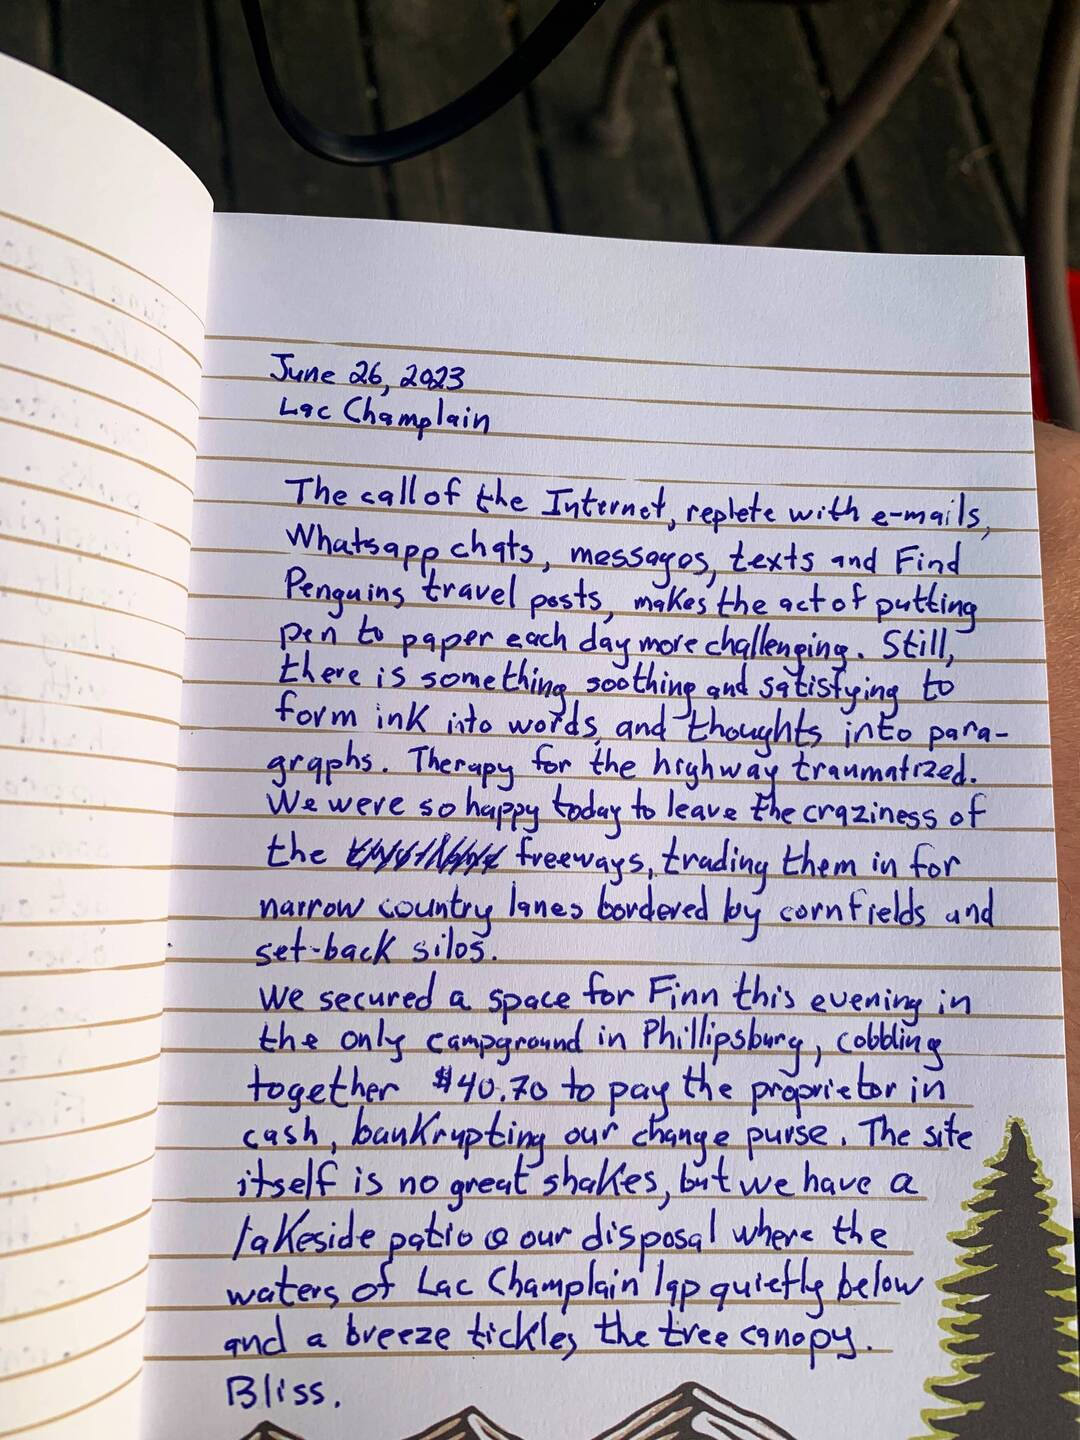 June 26, 2023
Lac Champlain
The call of the Internet, replete with e-mails,
Whatsapp chats, messages, texts and Find
Penguins travel posts, makes the act of putting
pen to paper each day more challenging. Still,
there is something soothing and satisfying to
form ink into words, and thoughts into para-
graphs. Therapy for the highway traumatized.
We were so happy today to leave the craziness of
the freeways, trading them in for
narrow country lanes bordered by cornfields and
set-back silos.
We secured a space for Finn this evening in
the only campground in Phillipsburg, cobbling
together $40.70 to pay the proprietor in
cash, bankrupting our change purse. The site
itself is no great shakes, but we have a
lakeside patio @ our disposal where the
waters of Lac Champlain lap quietly below
and a breeze tickles the tree canopy.
Bliss.